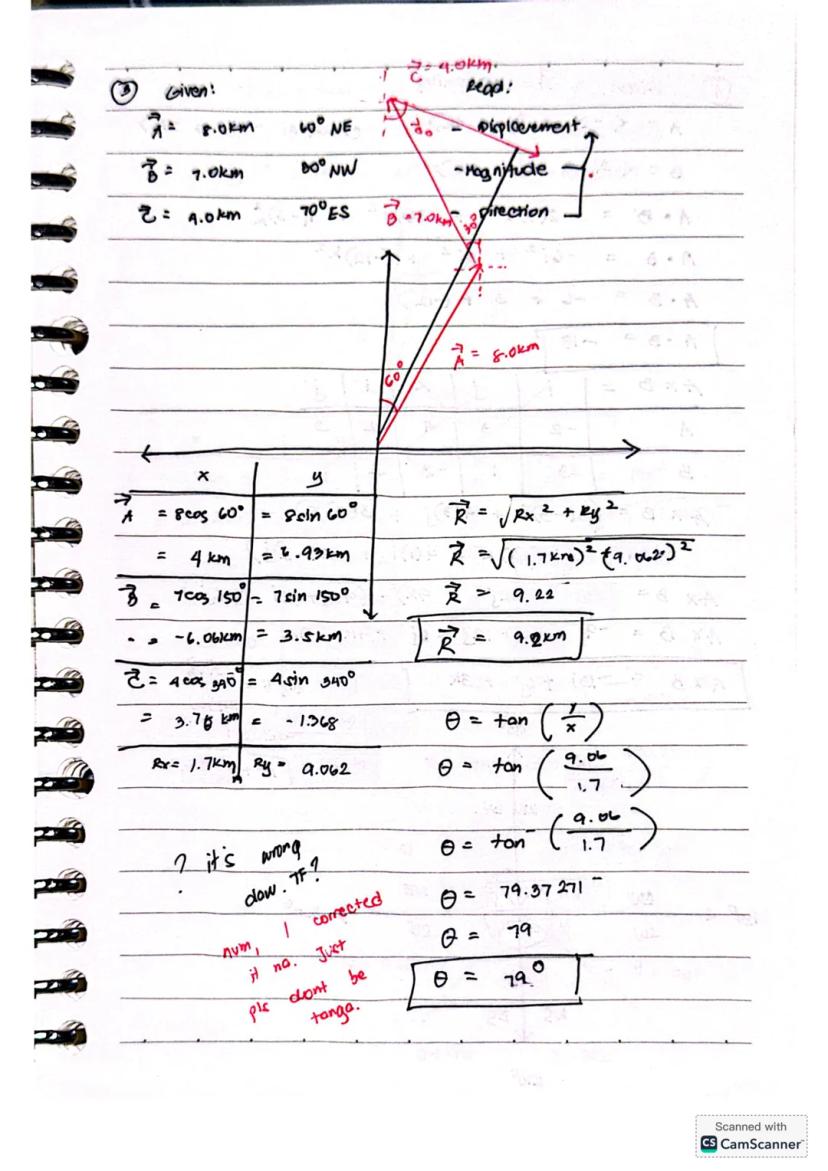 ③ Given:
Reqd:
C = 4.0km.
A = 8.0km 60° NE
- Displacement
B = 7.0km 80° NW
- Magnitude
C = 4.0km 70° ES
- Direction
B = 7.0km
30°
A = 8.0km
60°
x y
A = 8cos 60° = 8sin 60°
= 4 km = 6.93km
B = 7cos 150° = 7sin 150°
= -6.06km = 3.5km
C = 4cos 340° = 4sin 340°
= 3.76 km = -1.368
Rx = 1.7km Ry = 9.062
R = √Rx² + Ry²
R = √(1.7km)² + (9.062)²
R = 9.22
R = 9.2km
θ = tan (y/x)
θ = tan (9.06/1.7)
θ = tan⁻ (9.06/1.7)
θ = 79.37271
θ = 79
θ = 79°
? it's wrong
daw. TF?
num, I corrected
it na. Just
pls dont be
tanga.
Scanned with
CS CamScanner